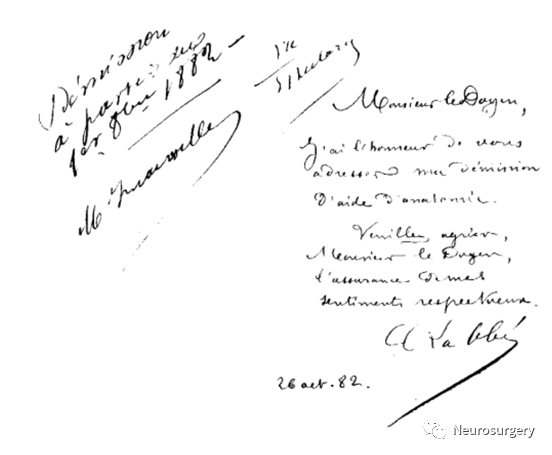 Démission
à partir du
1er 8bre 1882
M.
Monsieur le Doyen,
J'ai l'honneur de vous
adresser ma démission
d'aide d'anatomie.
Veuillez, agréer,
Monsieur le Doyen,
l'assurance de mes
sentiments respectueux.
Ch Labbé
26 oct. 82.
Neurosurgery